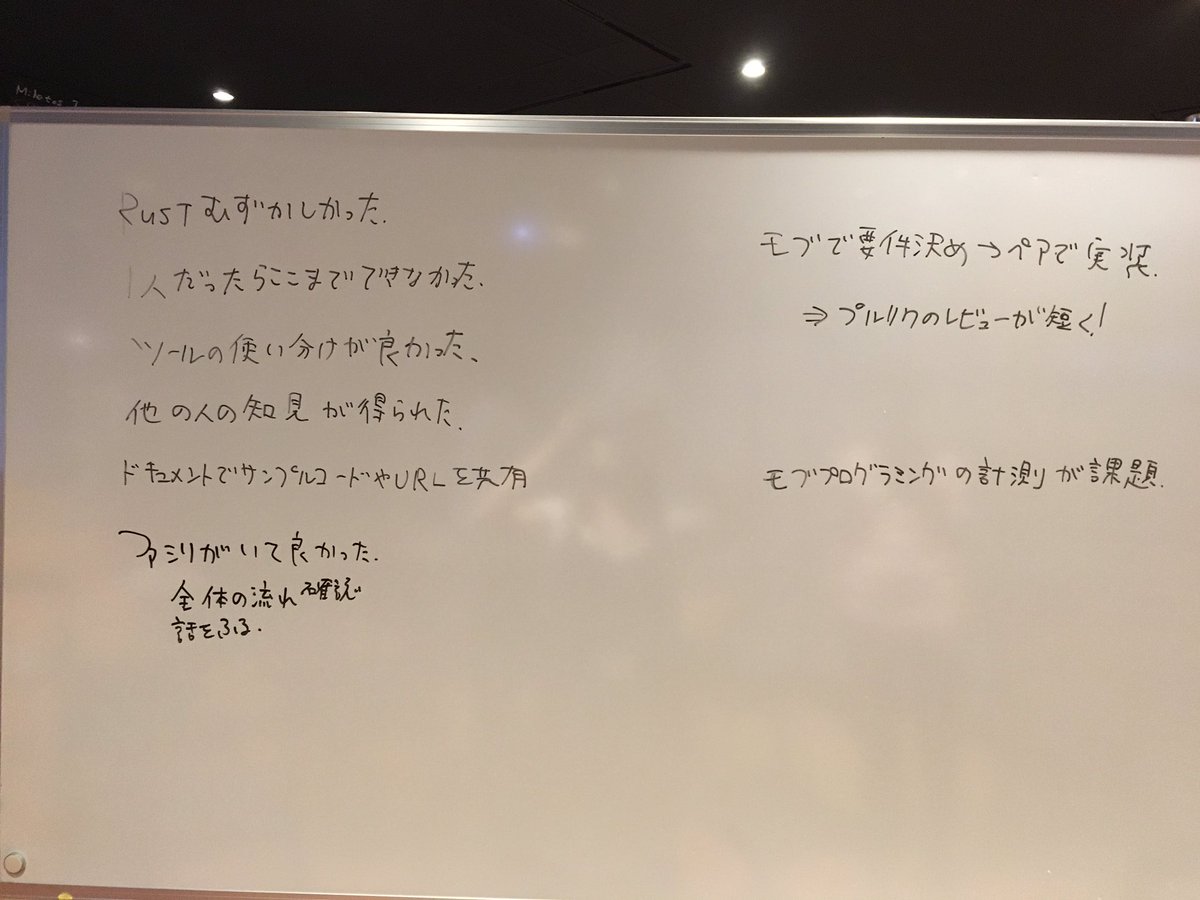 RUST むずかしかった.
1人だったらここまでできなかった.
ツールの使い分けが良かった、
他の人の知見が得られた.
ドキュメントでサンプルコードやURLを共有
ファシリがいて良かった.
全体の流れ確認
話をふる.
モブで要件決め→ペアで実装.
⇒ プルリクのレビューが短く!
モブプログラミングの計測が課題.